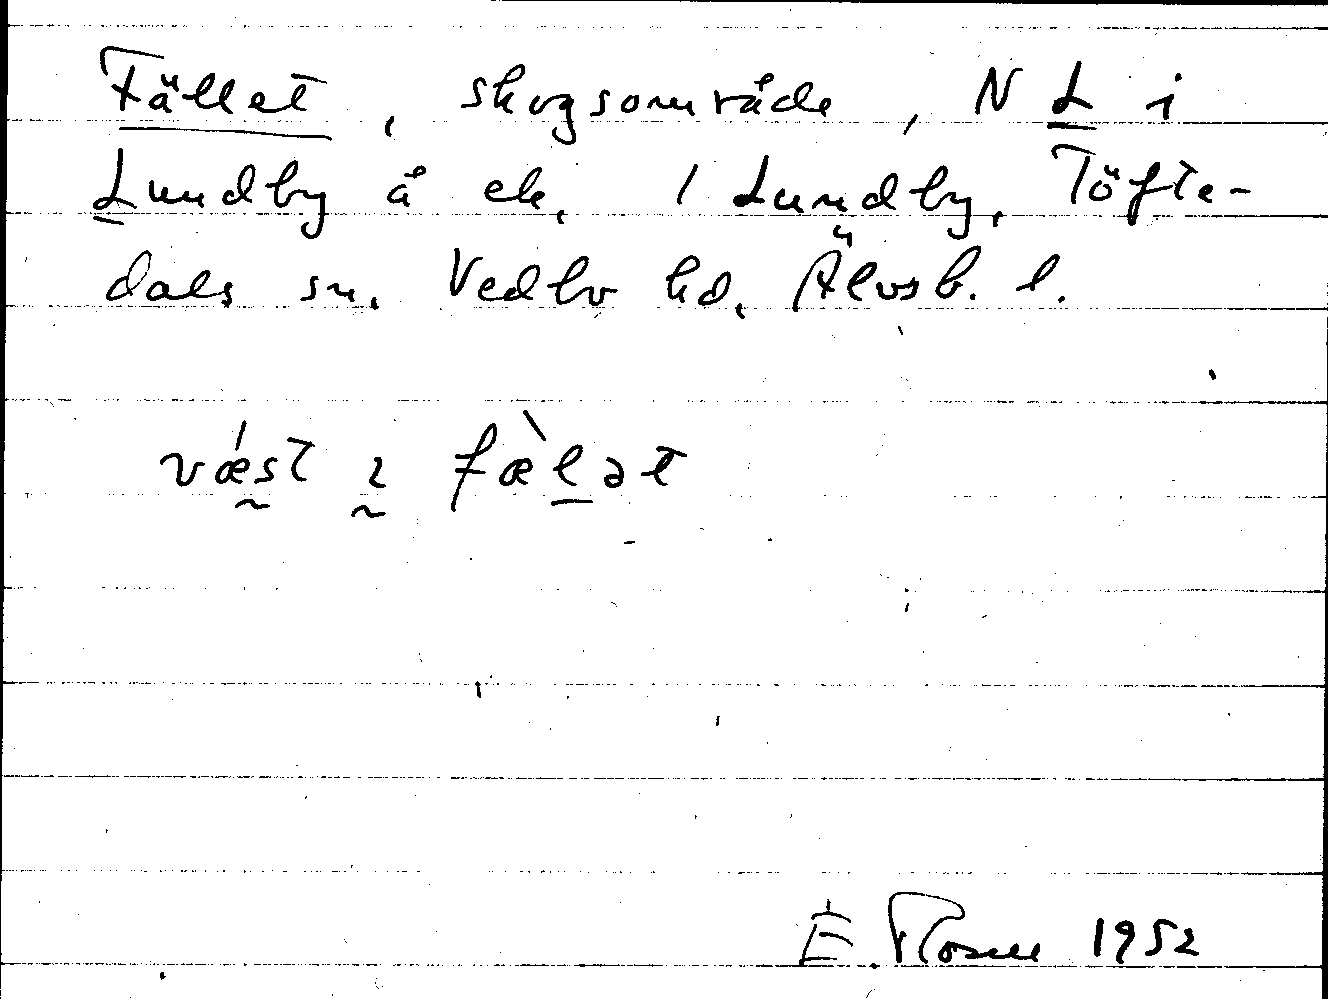 Fället, skogsområde, N L i
Lundby å ek. 1 Lundby, Töfte-
dals sn. Vedbo hd. Älvsb. l.
væst ɩ fæ̀lət
E. Flosen 1952